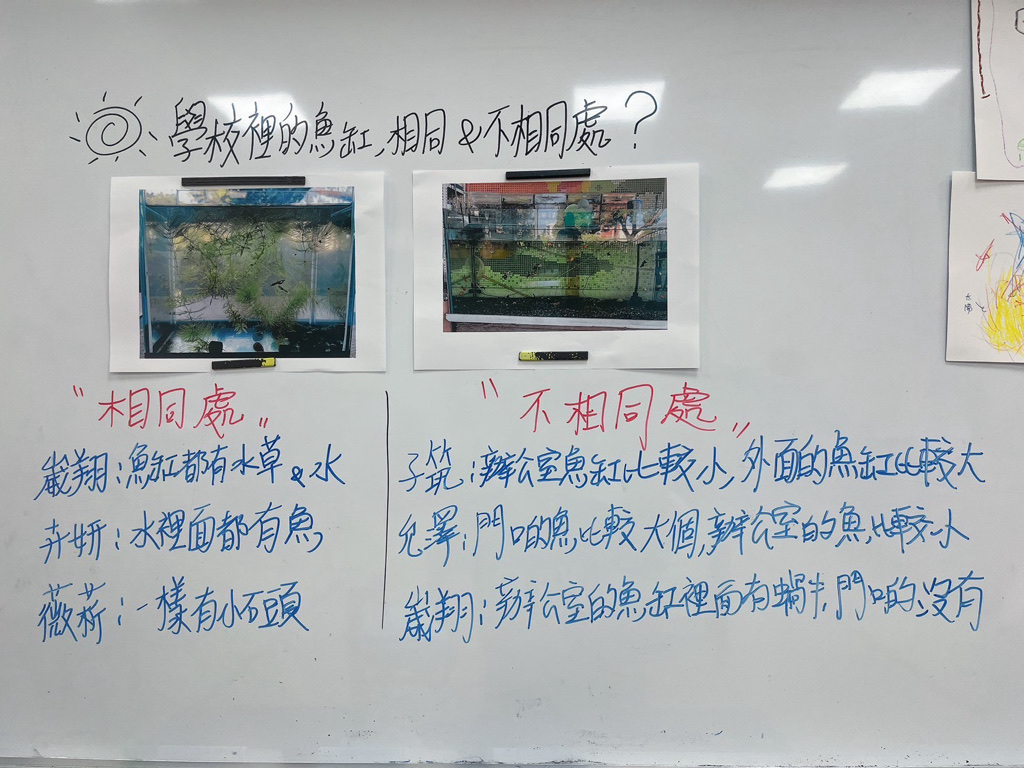 學校裡的魚缸,相同&不相同處?
"相同處"
崴翔:魚缸都有水草&水
卉妍:水裡面都有魚
薇菥:一樣有小石頭
"不相同處"
子筑:辦公室魚缸比較小,外面的魚缸比較大
允澤:門口的魚比較大個,辦公室的魚比較小
崴翔:辦公室的魚缸裡面有蝸牛,門口的沒有